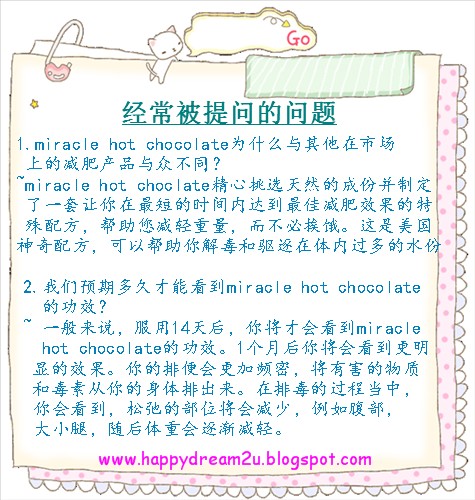 Go
经常被提问的问题
1.miracle hot chocolate为什么与其他在市场
上的减肥产品与众不同?
~miracle hot choclate精心挑选天然的成份并制定
了一套让你在最短的时间内达到最佳减肥效果的特
殊配方，帮助您减轻重量，而不必挨饿。这是美国
神奇配方，可以帮助你解毒和驱逐在体内过多的水份
2.我们预期多久才能看到miracle hot chocolate
的功效?
~ 一般来说，服用14天后，你将才会看到miracle
hot chocolate的功效。1个月后你将会看到更明
显的效果。你的排便会更加频密，将有害的物质
和毒素从你的身体排出来。在排毒的过程当中，
你会看到，松弛的部位将会减少，例如腹部，
大小腿，随后体重会逐渐减轻。
www.happydream2u.blogspot.com